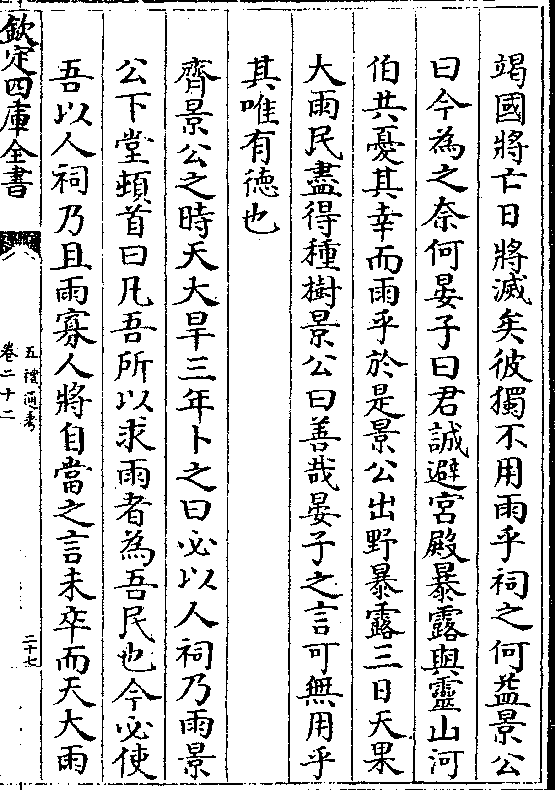 竭國將亡日將滅矣彼獨不用雨乎祠之何益景公
曰今為之奈何晏子曰君誠避宮殿暴露與靈山河
伯共憂其幸而雨乎於是景公出野暴露三日天果
大雨民盡得種樹景公曰善哉晏子之言可無用乎
其唯有德也
齊景公之時天大旱三年卜之曰必以人祠乃雨景
公下堂頓首曰凡吾所以求雨者為吾民也今必使
吾以人祠乃且雨寡人將自當之言未卒而天大雨
欽定四庫全書
五禮通考
卷二十二
二十七